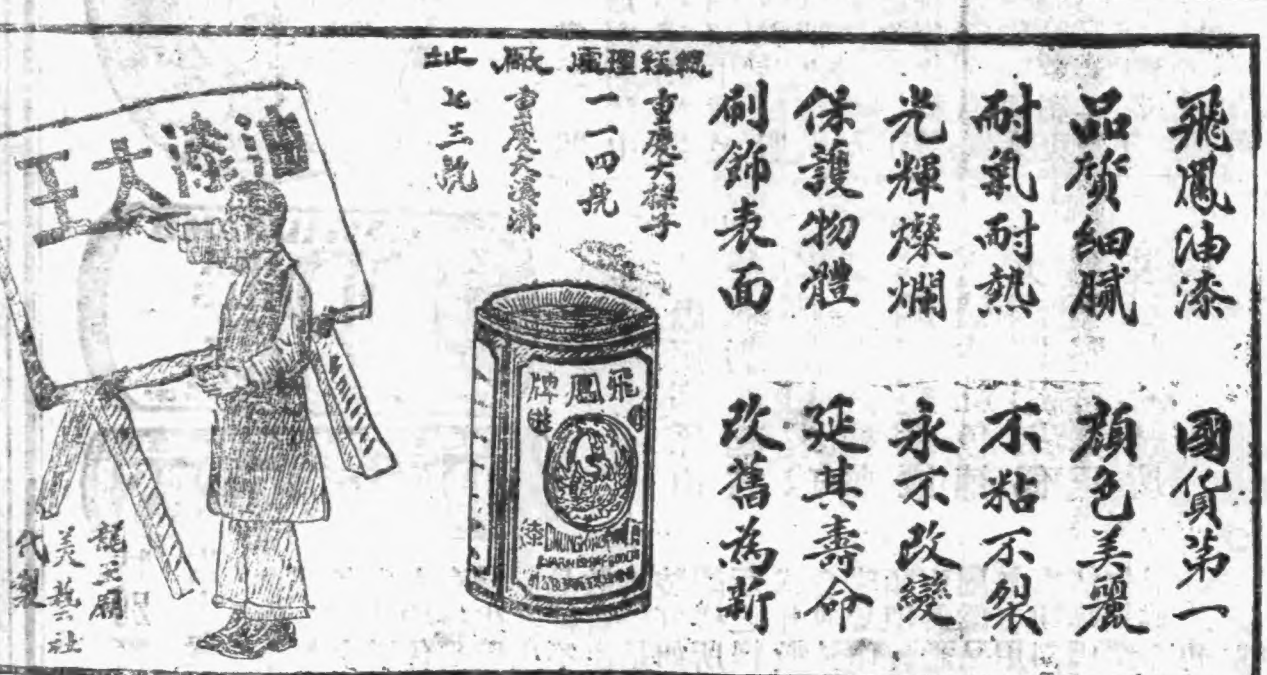 飛鳳油漆 國貨第一
品質細膩 顏色美麗
耐氣耐熱 不粘不裂
光輝燦爛 永不改變
保護物體 延其壽命
刷飾表面 改舊為新
總經理處
重慶大樑子
一一四號
廠址
重慶大溪溝
七三號
飛鳳牌
油漆大王
龍王廟
美藝社
代製